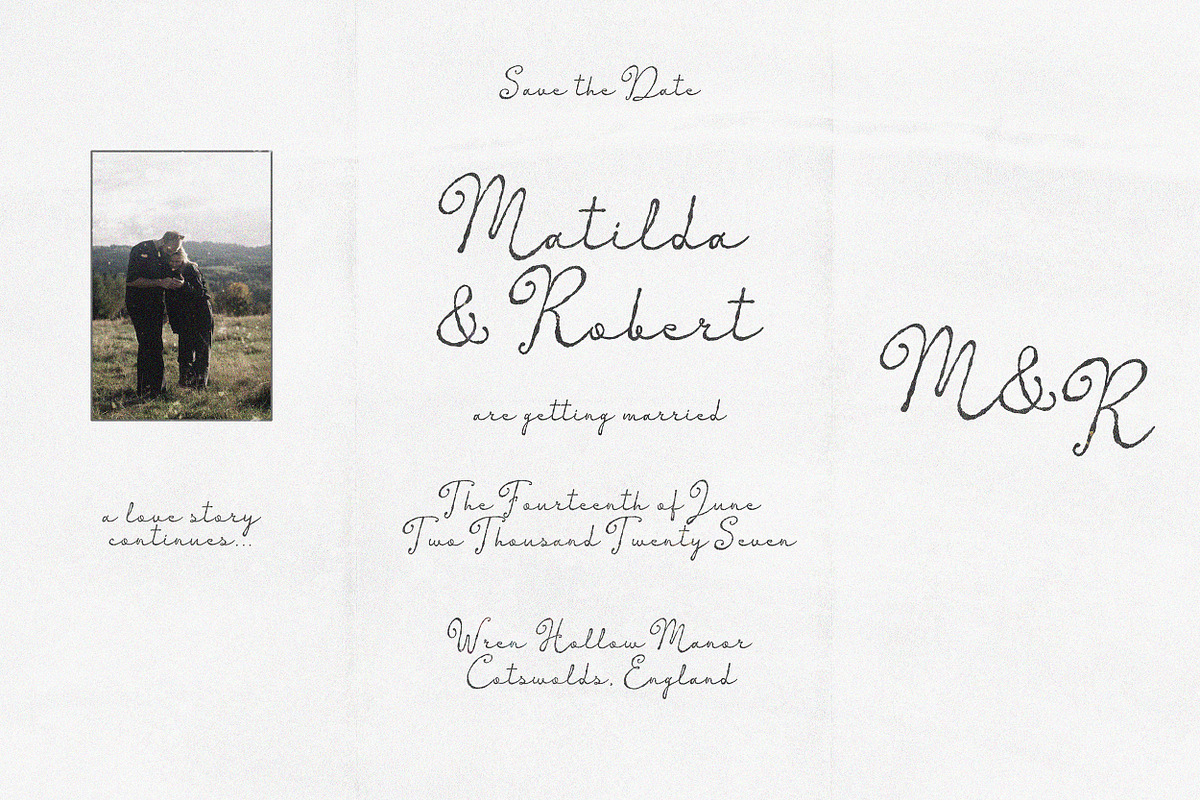 Save the Date
Matilda
& Robert
are getting married
The Fourteenth of June
Two Thousand Twenty Seven
Wren Hollow Manor
Cotswolds, England
a love story
continues...
M&R